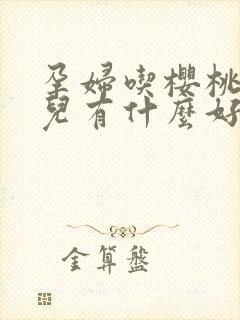 孕婦喫櫻桃
兒有什麼好
金算盤